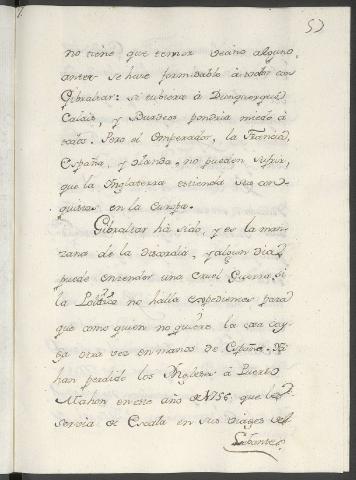 53
no tiene que temer de año alguno,
antes se hace formidable à todos con
Gibraltar: si tubiera à Dunquerque,
Calais, y Burdeos pondria miedo à
todos. Pero el Emperador, la Francia,
España, y Olanda, no pueden sufrir,
que la Inglaterra estienda sus con
quistas en la Europa.
Gibraltar há sido, y es la man
zana de la discordia, y algun dia
puede encender una cruel Guerra, si
la Politica no halla expedientes para
que como quien no quiere la cosa cay
ga otra vez en manos de España. Ya
han perdido los Ingleses à Puerto
Mahon en este año de 1756 que les
servia de Escala en sus viages de
Levante.